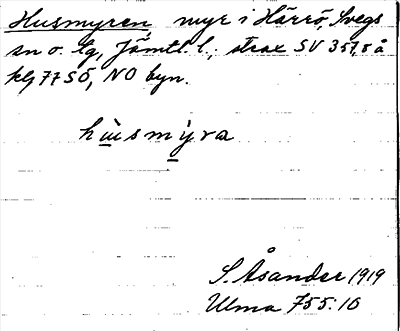 Husmyren, myr i Härrö, Svegs
sn o. tg, Jämtl. l.; strax SV 357,5 å
kbl 77 SÖ, NO byn.
hùsmýra
S. Åsander 1919
Ulma 755:10